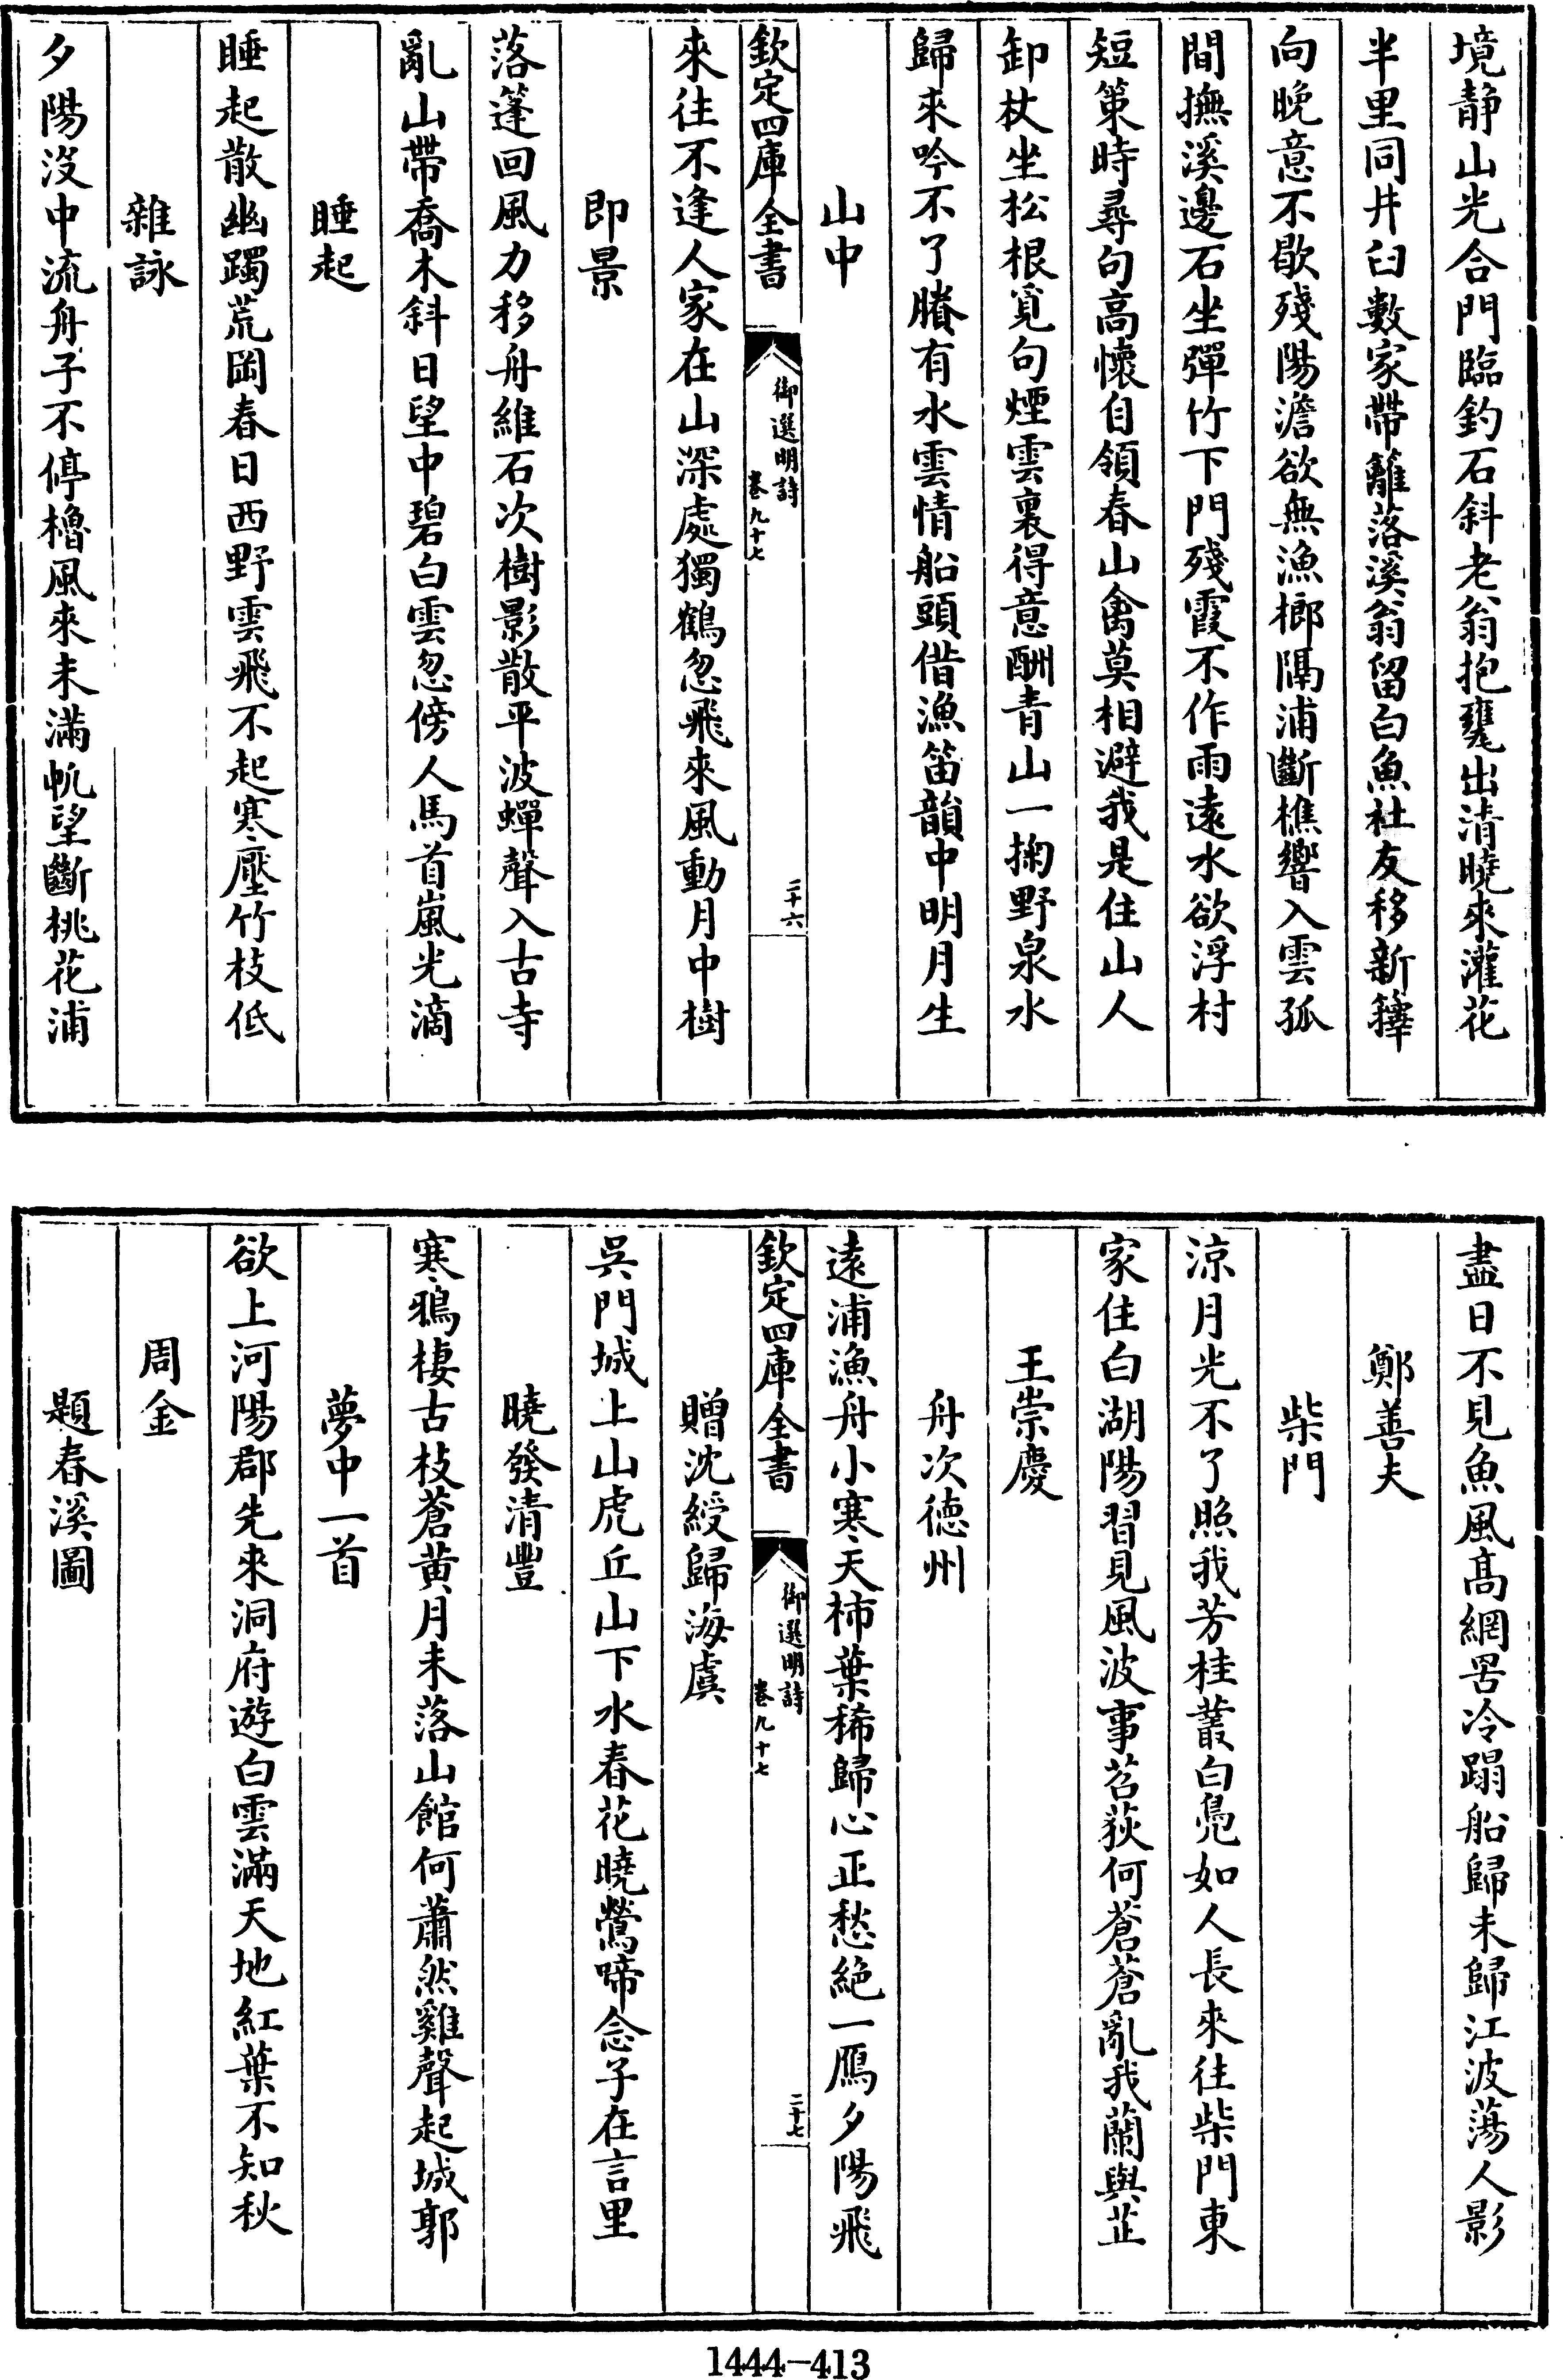 境靜山光合門臨釣石斜老翁抱甕出清曉來灌花
半里同井臼數家帶籬落溪翁留白魚社友移新籜
向晚意不歇殘陽澹欲無漁榔隔浦斷樵響入雲孤
閒撫溪邊石坐彈竹下門殘霞不作雨遠水欲浮村
短策時尋句高懷自領春山禽莫相避我是住山人
卸杖坐松根覓句煙雲裏得意酬青山一掬野泉水
歸來吟不了賸有水雲情船頭借漁笛韻中明月生
山中
欽定四庫全書
御選明詩
卷九十七
二十六
來往不逢人家在山深處獨鶴忽飛來風動月中樹
即景
落篷回風力移舟維石次樹影散平波蟬聲入古寺
亂山帶喬木斜日望中碧白雲忽傍人馬首嵐光滴
睡起
睡起散幽躅荒岡春日西野雲飛不起寒壓竹枝低
雜詠
夕陽没中流舟子不停櫓風來未滿帆望斷桃花浦
盡日不見魚風髙網罟冷蹋船歸未歸江波蕩人影
鄭善夫
柴門
涼月光不了照我芳桂叢白鳧如人長來往柴門東
家住白湖陽習見風波事苕荻何蒼蒼亂我蘭與芷
王崇慶
舟次德州
遠浦漁舟小寒天柿葉稀歸心正愁絶一鴈夕陽飛
欽定四庫全書
御選明詩
卷九十七
二十七
贈沈綬歸海虞
吳門城上山虎丘山下水春花曉鶯啼念子在言里
曉發清豐
寒鴉棲古枝蒼黄月未落山館何蕭然雞聲起城郭
夢中一首
欲上河陽郡先來洞府遊白雲滿天地紅葉不知秋
周金
題春溪圖
1444-413